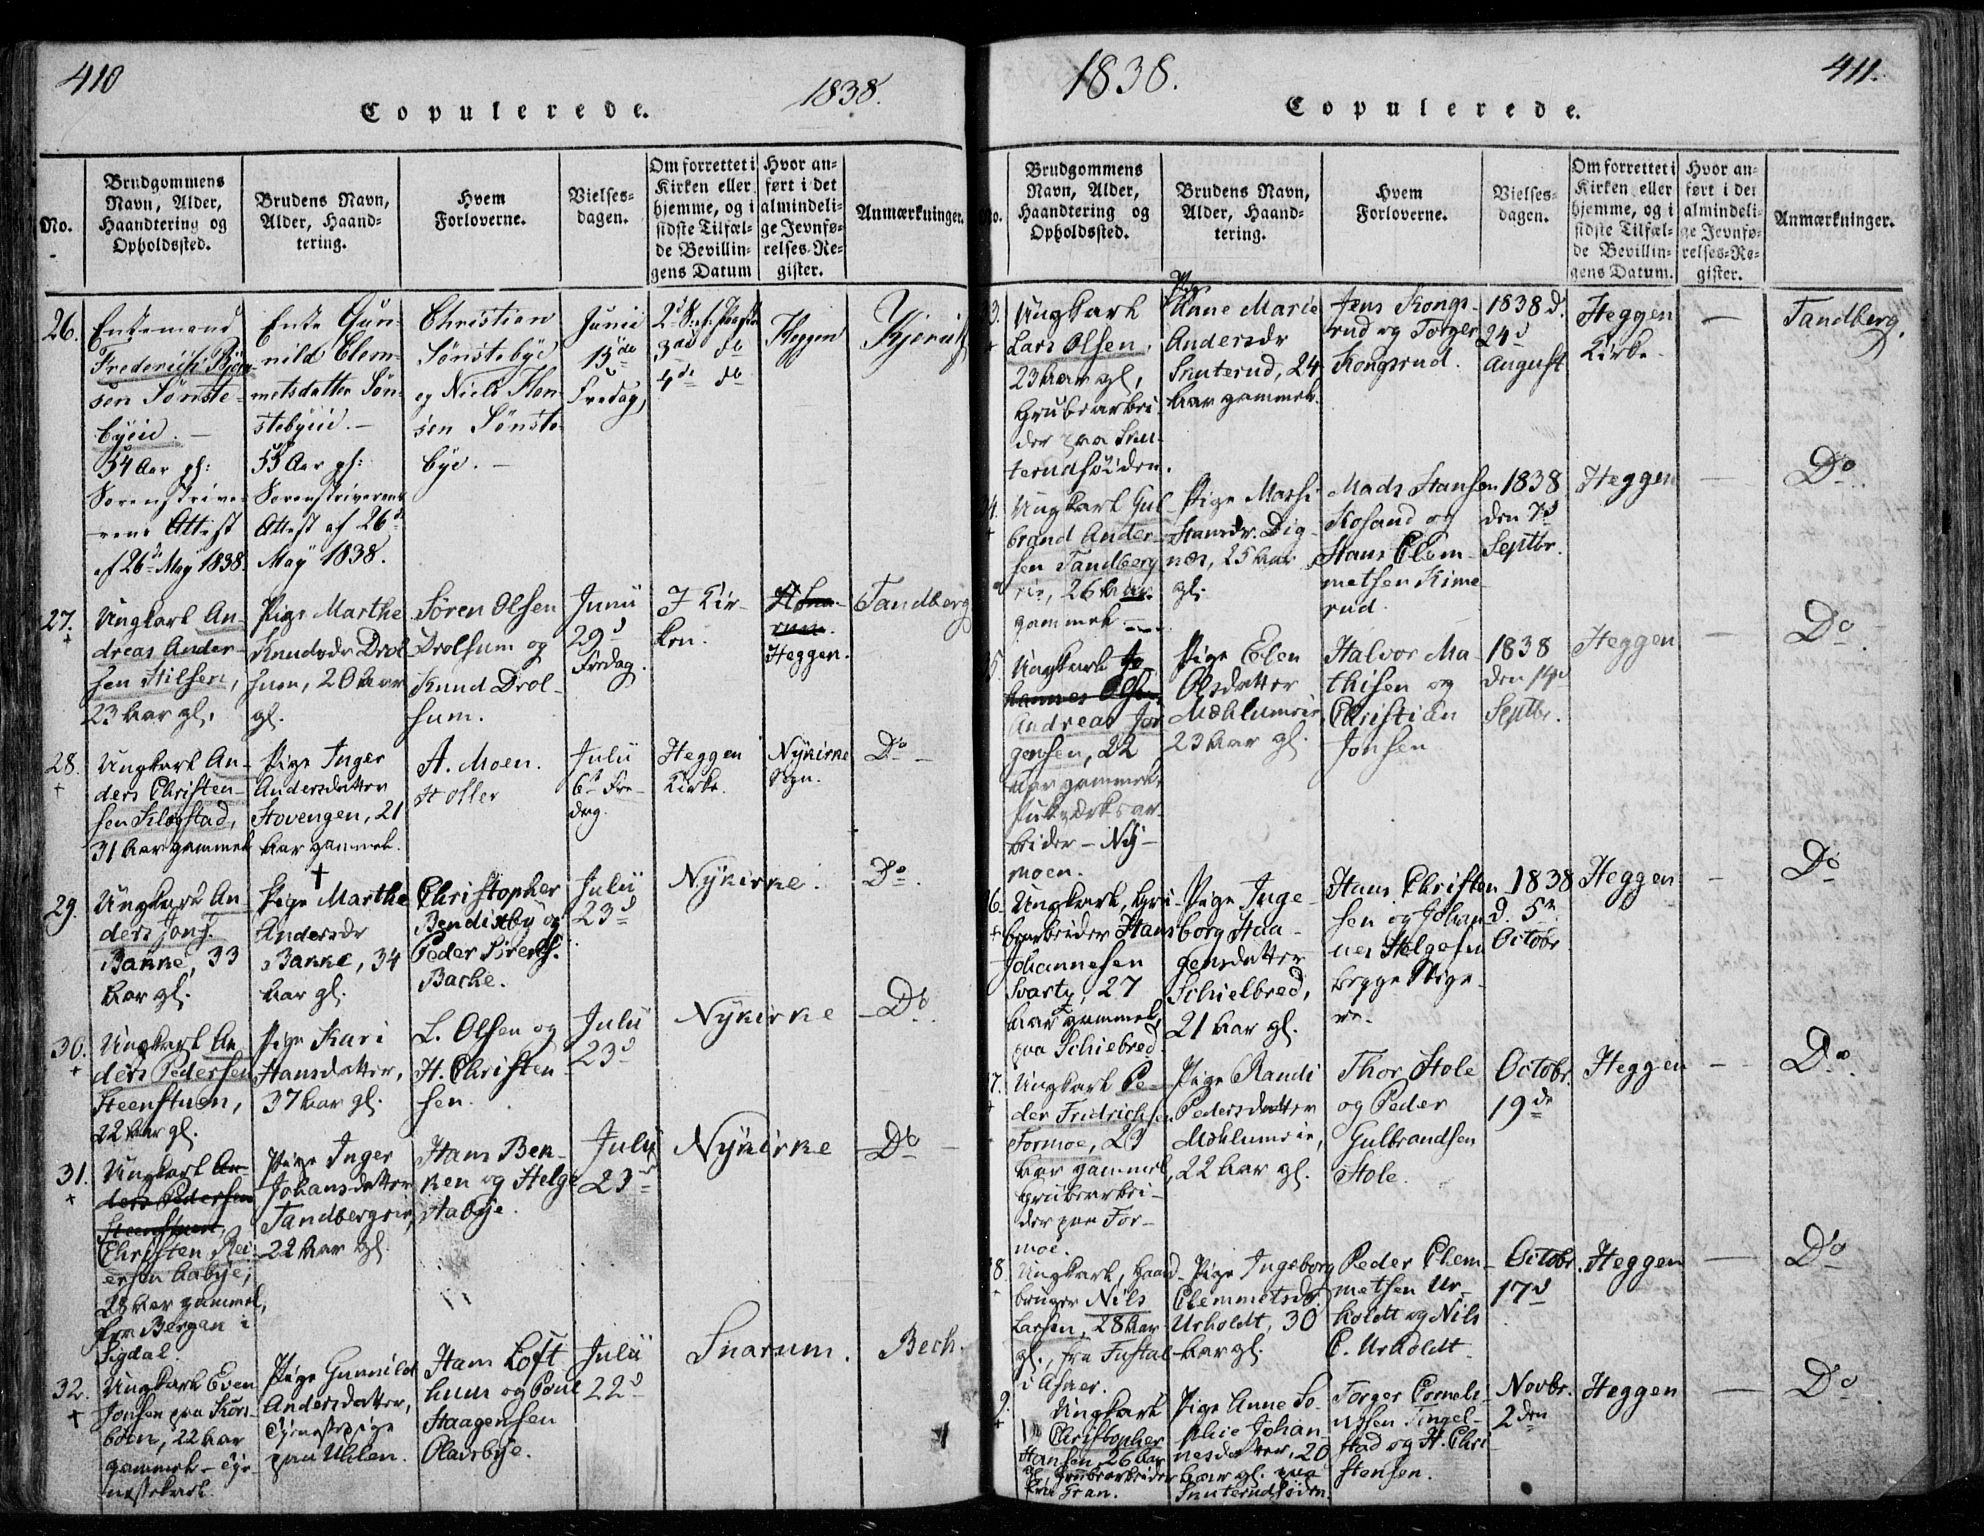 410
1838.
Copulerede.
No.
Brudgommens
Navn, Alder,
Haandtering og
Opholdssted.
Brudens Navn,
Alder, Haand-
tering.
Hvem
Forloverne.
Vielses-
dagen.
Om forrettet i
Kirken eller
hjemme, og i
sidste Tilfæl-
de Bevillin-
gens Datum
Hvor an-
ført i det
almindeli-
ge Jevnfø-
relses-Re-
gister.
Anmærkninger.
26.
Enkemand
Frederich Bjørn-
sen Sønste-
byeie. —
54 Aar gl:
Sorenskrive-
rens Attest
af 26de May 1838.
Enke Gun-
nild Clem-
metsdatter Søn-
stebyeie. —
53 Aar gl:
Sorenskriverens
Attest af 26de
May 1838.
Christian
Sønstebye
og Niels Han
sen Sønste-
bye. —
Junii
15de
Fredag
3die do
4de do
Heggen
27.
Ungkarl An-
dreas Ander-
sen Hilsen,
23 Aar gl.
Pige Marthe
Knudsdr Drol
sum, 20 Aar
gl.
Søren Olsen
Drolsum og
Knud Drol-
sum.
Junii
29d
Fredag.
I Kir-
ken.
Heggen.
Tandberg
28.
Ungkarl An-
ders Christen-
sen Kløgstad,
31 Aar gammel
Pige Inger
Andersdatter
Hovengen, 21
Aar gammel.
A. Moen.
Holler
Julii
6te Fre-
dag.
Heggen
Kirke.
Nykirke
Sogn.
Do —
29.
Ungkarl An-
ders Jons.
Bakke, 33
Aar gl.
Pige Marthe
Andersdr
Bakke, 34
Aar gl.
Christopher
Bendixby og
Peder
Backe.
Julii
23d
Nykirke.
Do.
30.
Ungkarl An
ders Pedersen
Steenstuen,
22 Aar gl.
Pige Kari
Hansdatter,
37 Aar gl.
L. Olsen og
H. Christen
sen.
Julii
23d
Nykirke
— Do.
31.
Ungkarl An-
ders Pedersen
Steenstuen,
Christen Rei-
ersen Aabye,
28 Aar gammel,
fra Bergan i
Sigdal
Pige Inger
Johansdatter
Tandbergeie,
22 Aar gl.
Hans Ben-
ken og Helge
Aabye.
Julii
23d
Nykirke
Do —
32.
Ungkarl Even
Jonsen paa Kors-
boen, 22 Aar
gammel — Tje-
nestekarl.
Pige Gunnild
Andersdatter,
Tjenestepige
paa Uhlen.
Hans Loft
huus og Poul
Haagensen
Olavsbye.
Julii
22d
Snarum.
Bech.
1838.
411.
Copulerede.
No.
Brudgommens
Navn, Alder,
Haandtering og
Opholdssted.
Brudens Navn,
Alder, Haand-
tering.
Hvem
Forloverne.
Vielses-
dagen.
Om forrettet i
Kirken eller
hjemme, og i
sidste Tilfæl-
de Bevillin-
gens Datum.
Hvor an-
ført i det
almindeli-
ge Jevnfø-
relses-Re-
gister.
Anmærkninger.
3.
Ungkarl
Lars Olsen,
23 Aar gl,
Grubearbei
der paa Snu-
terudseiden.
Pige
Anne Marie
Andersdr
Snuterud, 24
Aar gammel.
Jens Kongs-
rud og Torger
Kongsrud.
1838 d.
24d
August
Heggen
Kirke.
—
Tandberg.
4.
Ungkarl Gul
brand Ander-
sen Tandberg
eie, 26 Aar
gammel —
Pige Marthe
Hansdr. Dig-
næs, 25 Aar
gl.
Mads Hansen
Kosand og
Hans Clem-
metsen Kime
rud.
1838
den 7d
Septbr.
Heggen
—
Do.
5.
Ungkarl Jo-
hannes Olsen
Andreas Jør
gensen, 22
Aar gammel,
Pukværksar-
beider — Ny-
moen.
Pige Elen
Olsdatter
Mæhlumeie,
23 Aar gl.
Halvor Ma
thisen og
Christian
Jonsen
1838
den 14d
Septbr.
Heggen
—
Do.
6.
Ungkarl, Gru-
bearbeider Hans
Johannesen
Svartz, 27
Aar gammel,
paa Schiebred
Pige Inge-
borg Haa-
gensdatter
Schielbred,
21 Aar gl.
Hans Christen
sen og Johan
nes Helgesen
begge Stige-
re.
1838
d. 5te
Octobr.
Heggen
—
Do
7.
Ungkarl Pe-
der Fridrichsen
Formoe, 23
Aar gammel,
Grubearbei-
der paa For-
moe.
Pige Randi
Pedersdatter
Mæhlumeie,
22 Aar gl.
Thor Hole
og Peder
Gulbrandsen
Hole.
Octobr.
19de
Heggen
—
Do.
8.
Ungkarl, Gaard-
bruger Nils
Larsen, 28 Aar
gl., fra
i Asker.
Pige Ingeborg
Clemmetsdr.
Urholdt, 30
Aar gl.
Peder Clem-
metsen Ur-
holdt og Nils
C. Urholdt.
Octobr.
17d
Heggen
—
Do
9.
Ungkarl
Christopher
Hansen, 26 Aar
gl. Grubearbeider
fra Fran.
Pige Anne So-
phie Johan-
nesdatter, 20
Aar gl. paa
Snuterudseiden.
Torger Corneli-
ussen Tingel-
stad og H. Chri
stensen.
Novbr.
2den
Heggen
—
Do